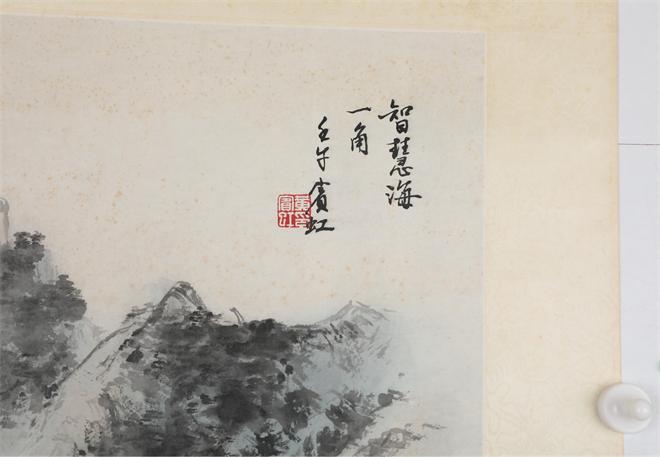 智慧海
一角
壬午賓虹
黃賓虹